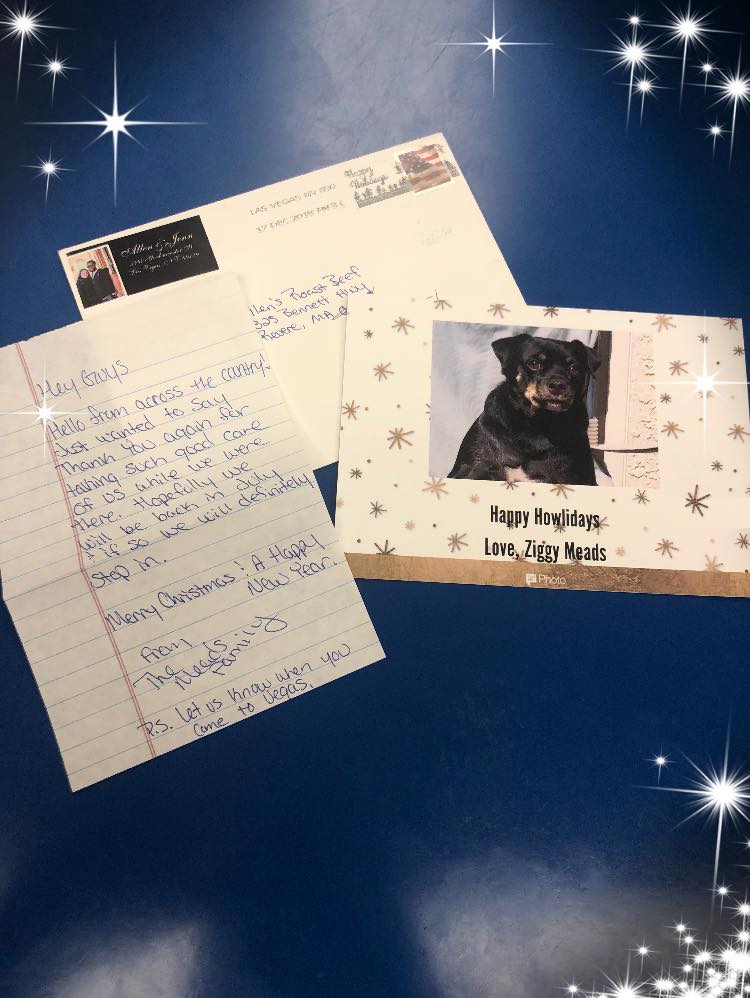 Happy
Holidays
LAS VEGAS NV 890
17 DEC 2018 PM 3 L
Allen & Jenn
Roast Beef
Bennett Hwy
Revere, MA
Hey Guys
Hello from across the country!
Just wanted to say
Thank you again for
taking such good care
of us while we were
there. Hopefully we
will be back in July
& if so we will definitely
stop in.
Merry Christmas & A Happy
New Year.
From
The Meads
Family
P.S. Let us know when you
come to Vegas.
Happy Howlidays
Love, Ziggy Meads
Photo